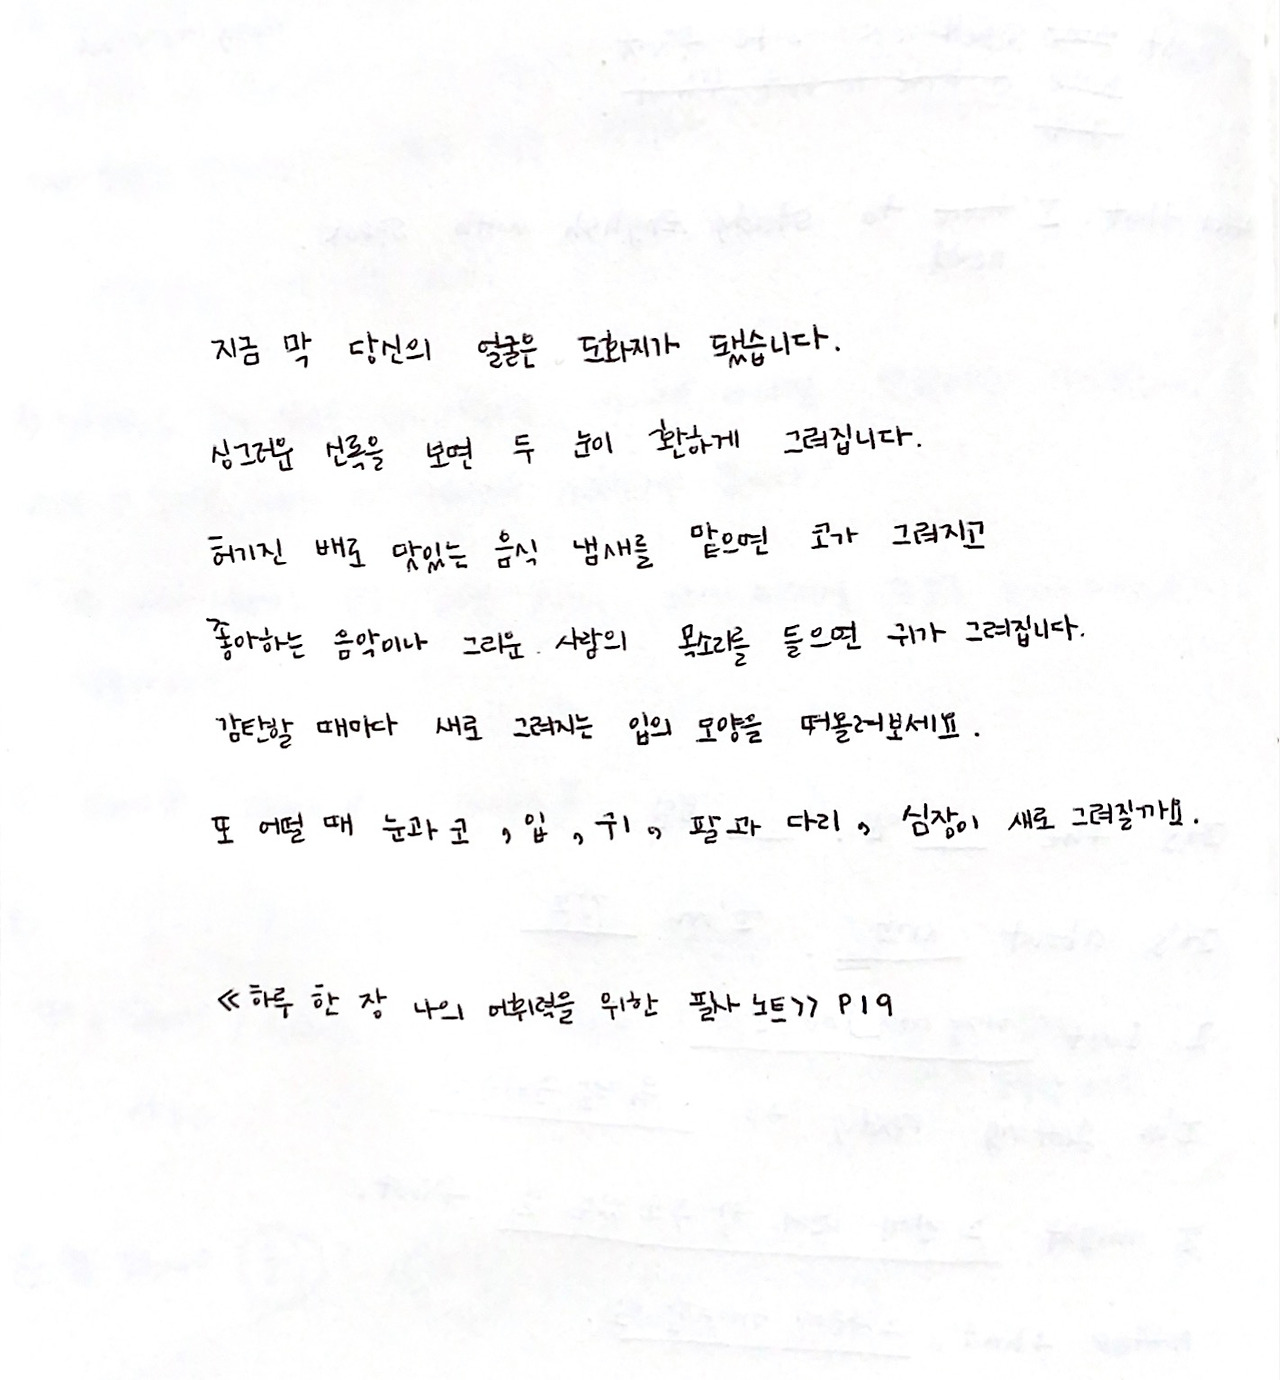 지금 막 당신의 얼굴은 도화지가 됐습니다.
싱그러운 신록을 보면 두 눈이 환하게 그려집니다.
허기진 배로 맛있는 음식 냄새를 맡으면 코가 그려지고
좋아하는 음악이나 그리운 사람의 목소리를 들으면 귀가 그려집니다.
감탄할 때마다 새로 그려지는 입의 모양을 떠올려보세요.
또 어떨 때 눈과 코, 입, 귀, 팔과 다리, 심장이 새로 그려질까요.
≪하루 한 장 나의 어휘력을 위한 필사 노트>> P19